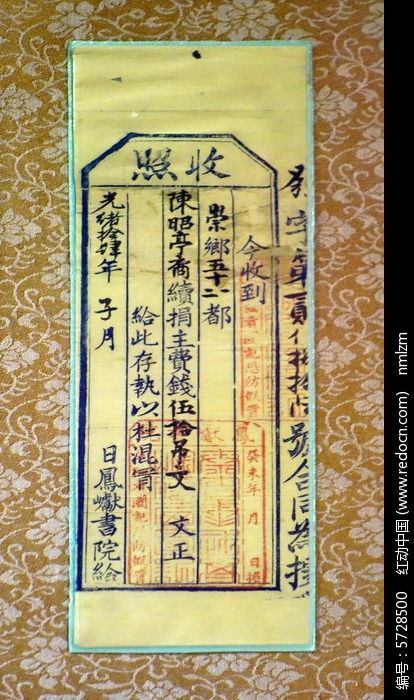 收照
今收到
崇鄉五十二都
陳昭亭裔續捐主費錢伍拾吊文 文正
給此存執以杜混冒
光緒拾肆年 子月 日鳳巘書院給
號合同為據
癸未年 月 日
编号：5728500 红动中国 (www.redocn.com) nmlzm